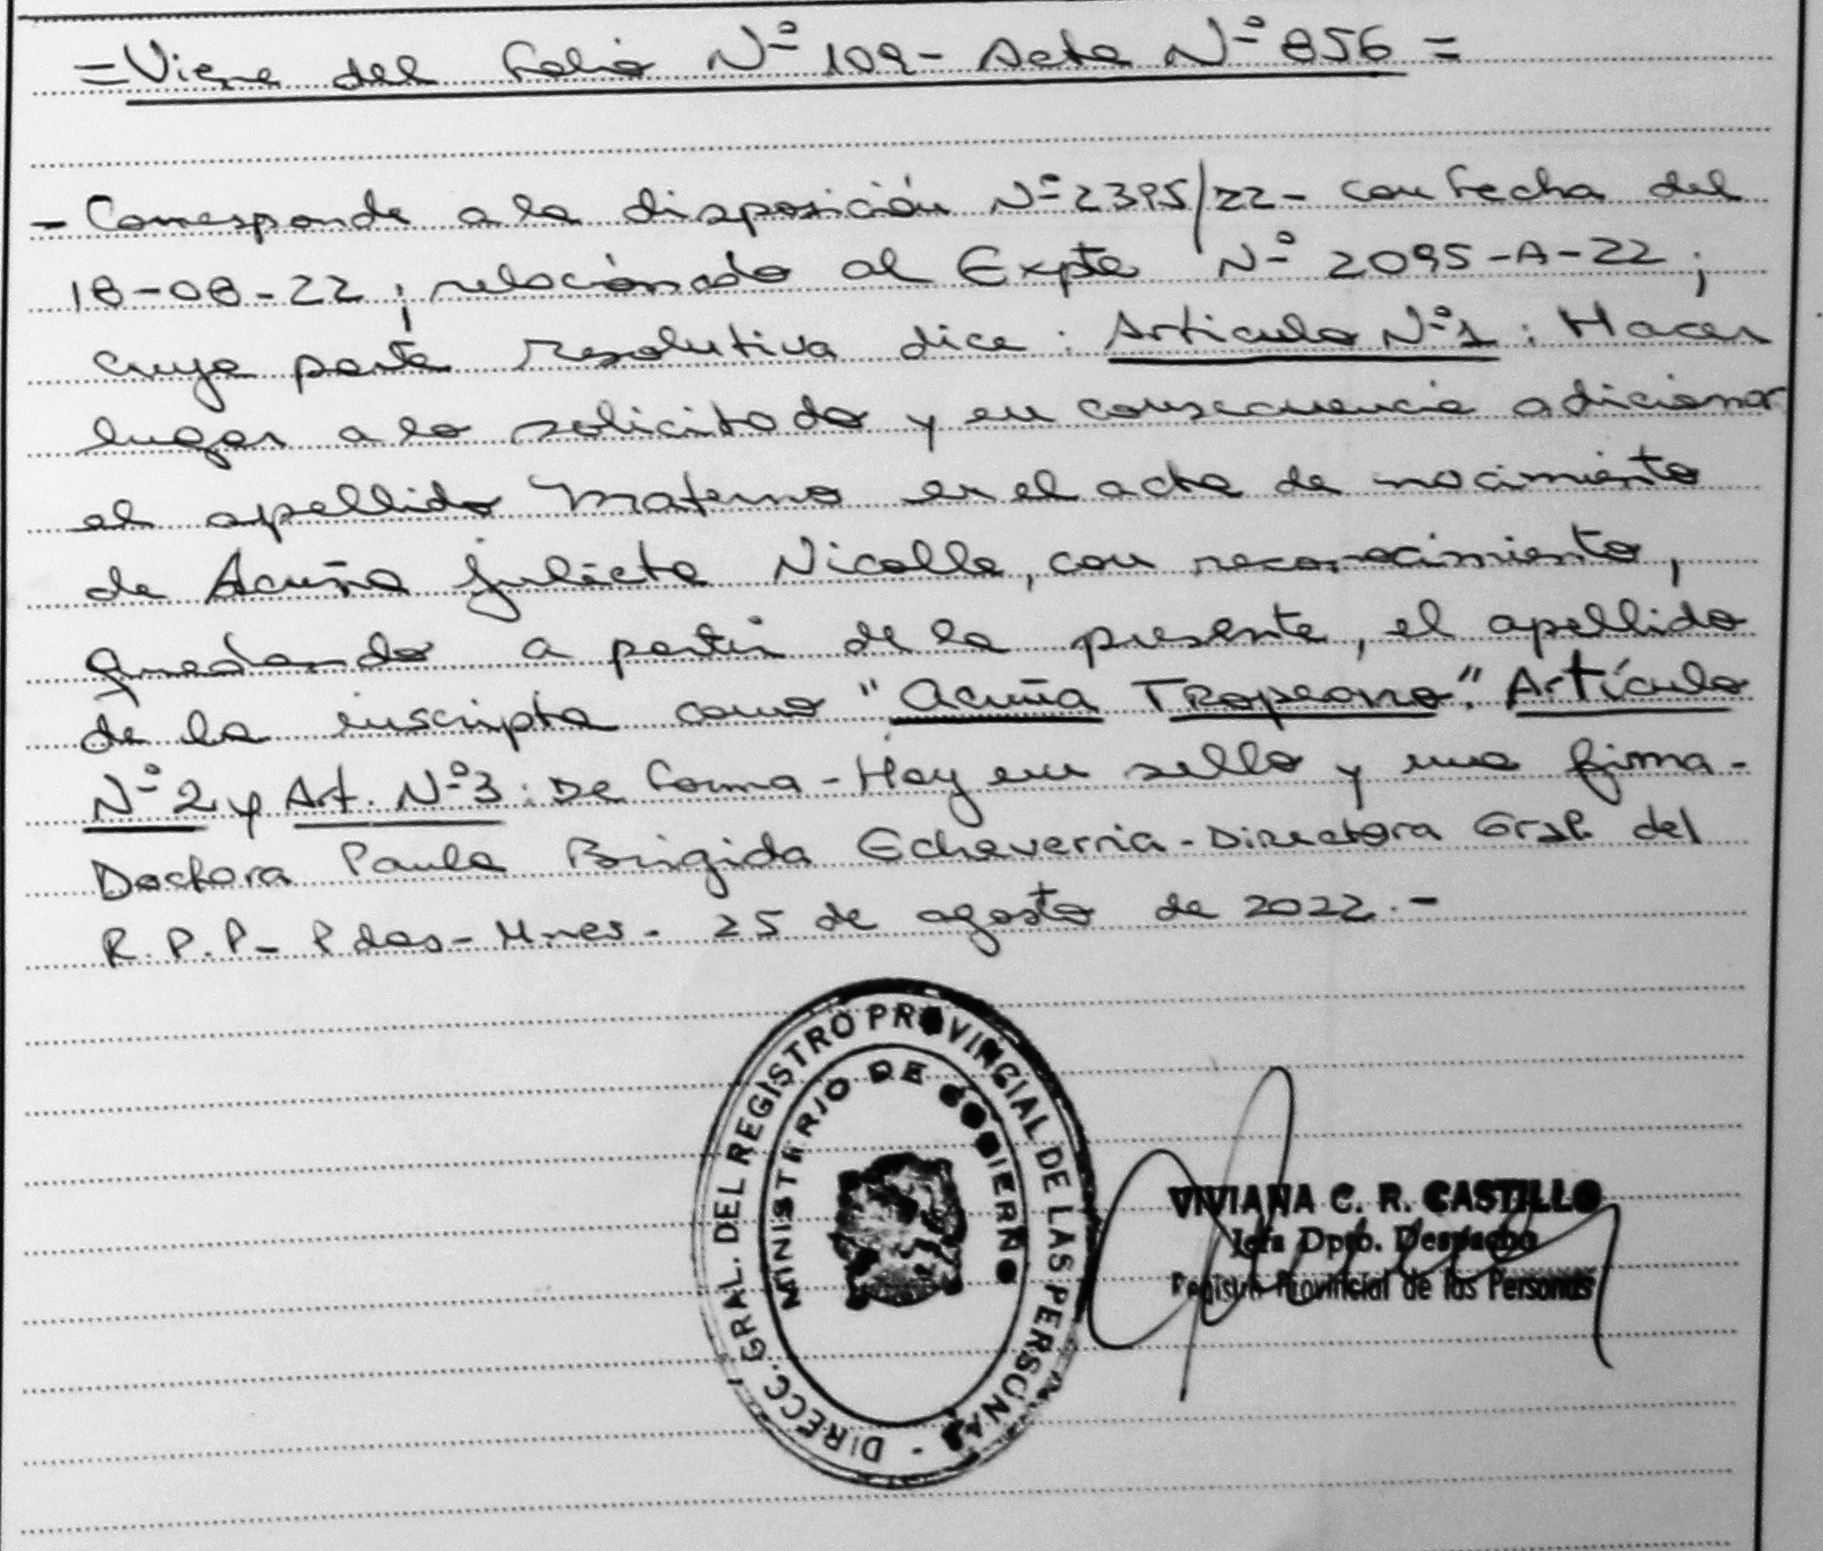 =Viene del folio Nº 109- Acta Nº 856 =
- Corresponde a la disposición Nº 2395/22- con fecha del
18-08-22; relacionado al Expte Nº 2095-A-22;
cuya parte resolutiva dice: Articulo Nº1: Hacer
lugar a lo solicitado y en consecuencia adicionar
el apellido Materno en el acta de nacimiento
de Acuña Julieta Nicolle, con reconocimiento,
quedando a partir de la presente, el apellido
de la inscripta como "Acuña Tropeano". Artículo
Nº 2 y Art. Nº3: De forma - Hay un sello y una firma -
Doctora Paula Brigida Echeverria - Directora Gral. del
R.P.P- Pdas - Mnes. 25 de agosto de 2022.-
DIRECC. GRAL. DEL REGISTRO PROVINCIAL DE LAS PERSONAS -
MINISTERIO DE GOBIERNO
VIVIANA C. R. CASTILLO
Jefa Dpto. Despacho
Registro Provincial de las Personas